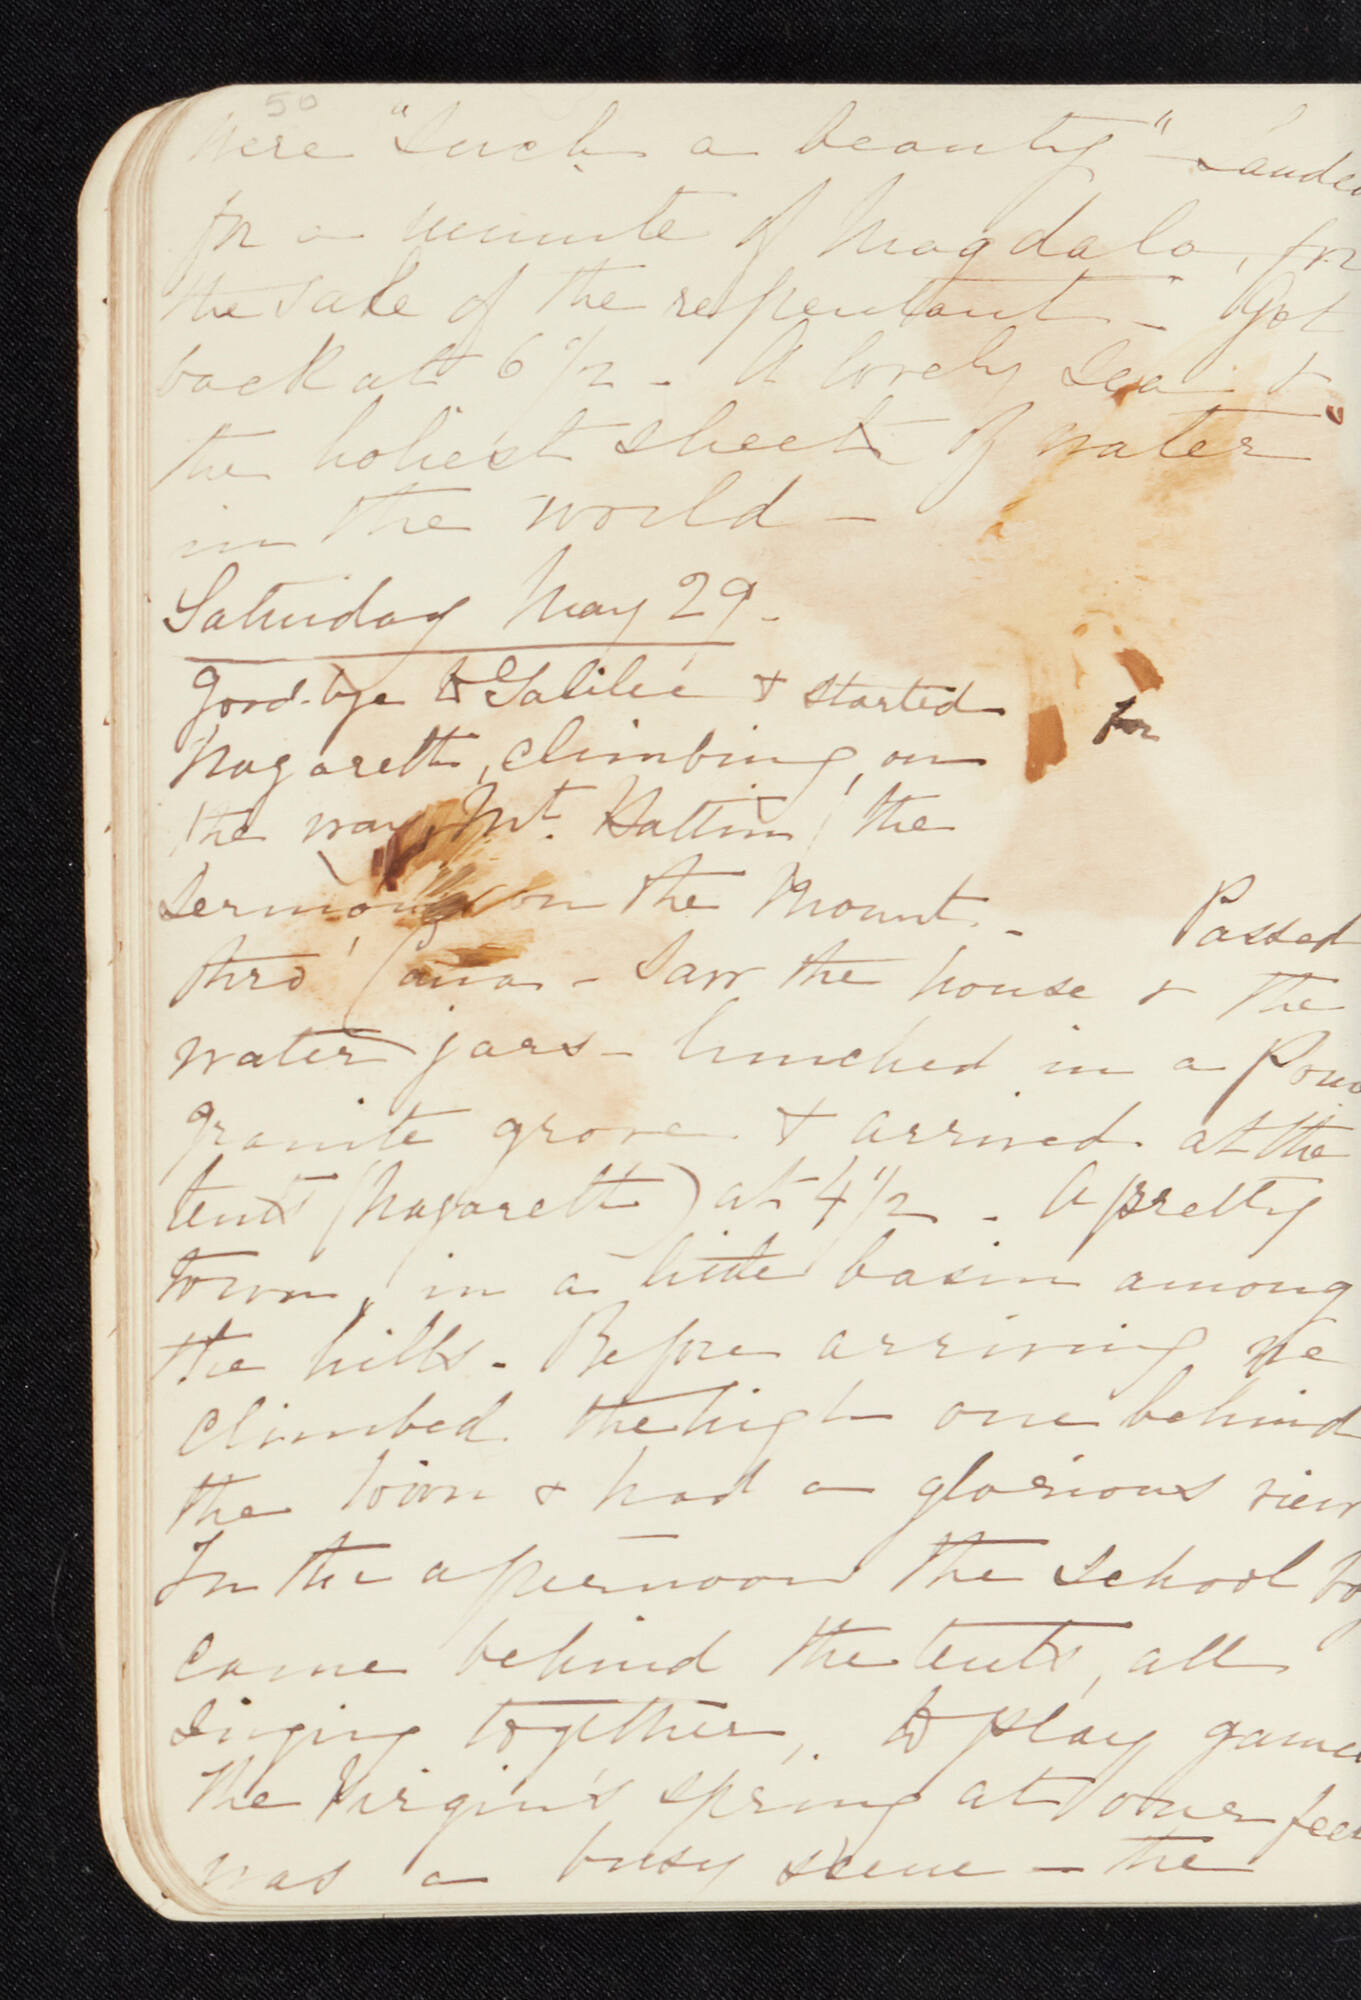 50
were "such a beauty" - Landed
for a minute of Magdala, for
the sake of the repentant - Got
back at 6 1/2 - A lovely sea &
the holiest sheet of water
in the world -
Saturday May 29 -
Good-bye to Galilee & started for
Nazareth, climbing, on
the way, Mt. Hattin, the
Sermon on the Mount. - Passed
thro' Cana - Saw the house & the
water jars - lunched in a Pome
granite grove & arrived at the
tents (Nazareth) at 4 1/2 - A pretty
town, in a little basin among
the hills - Before arriving we
climbed the high one behind
the town & had a glorious view
In the afternoon the school boy
came behind the tents, all
singing together, to play games
The Virgin's spring at our feet
was a busy scene - the